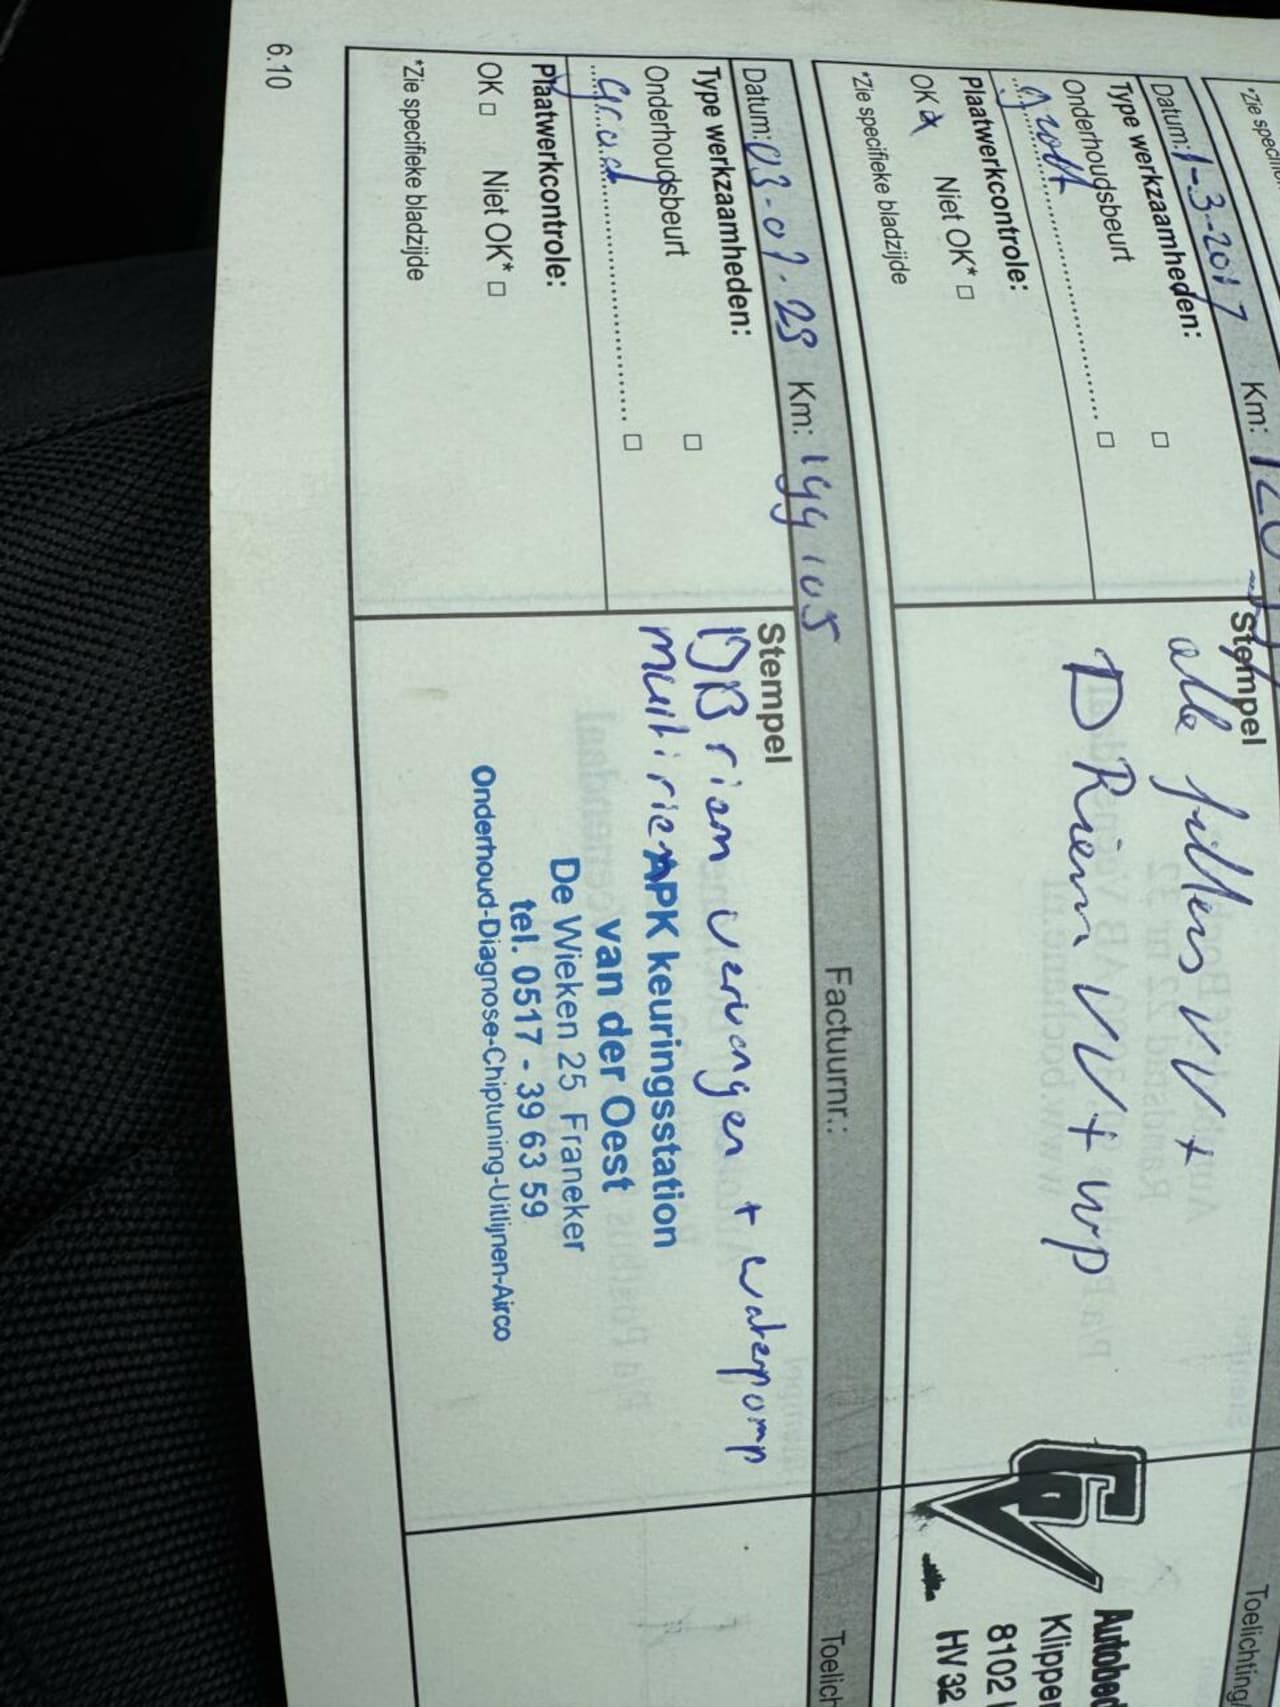 *Zie specifieke
Datum: 1-3-2017 Km: 120
Stempel
Toelichting
Type werkzaamheden:
Onderhoudsbeurt □
groot □
Plaatwerkcontrole:
OK x Niet OK* □
*Zie specifieke bladzijde
alle filters VV +
D Riem VV + wp
GV
Autobed
Klipper
8102
HV 32
Datum: 03-07-25 Km: 199105
Factuurnr.:
Toelich
Type werkzaamheden:
Onderhoudsbeurt □
groot □
Plaatwerkcontrole:
OK □ Niet OK* □
*Zie specifieke bladzijde
Stempel
DB riem vervangen + waterpomp
multi riem
APK keuringsstation
van der Oest
De Wieken 25 Franeker
tel. 0517 - 39 63 59
Onderhoud-Diagnose-Chiptuning-Uitlijnen-Airco
6.10